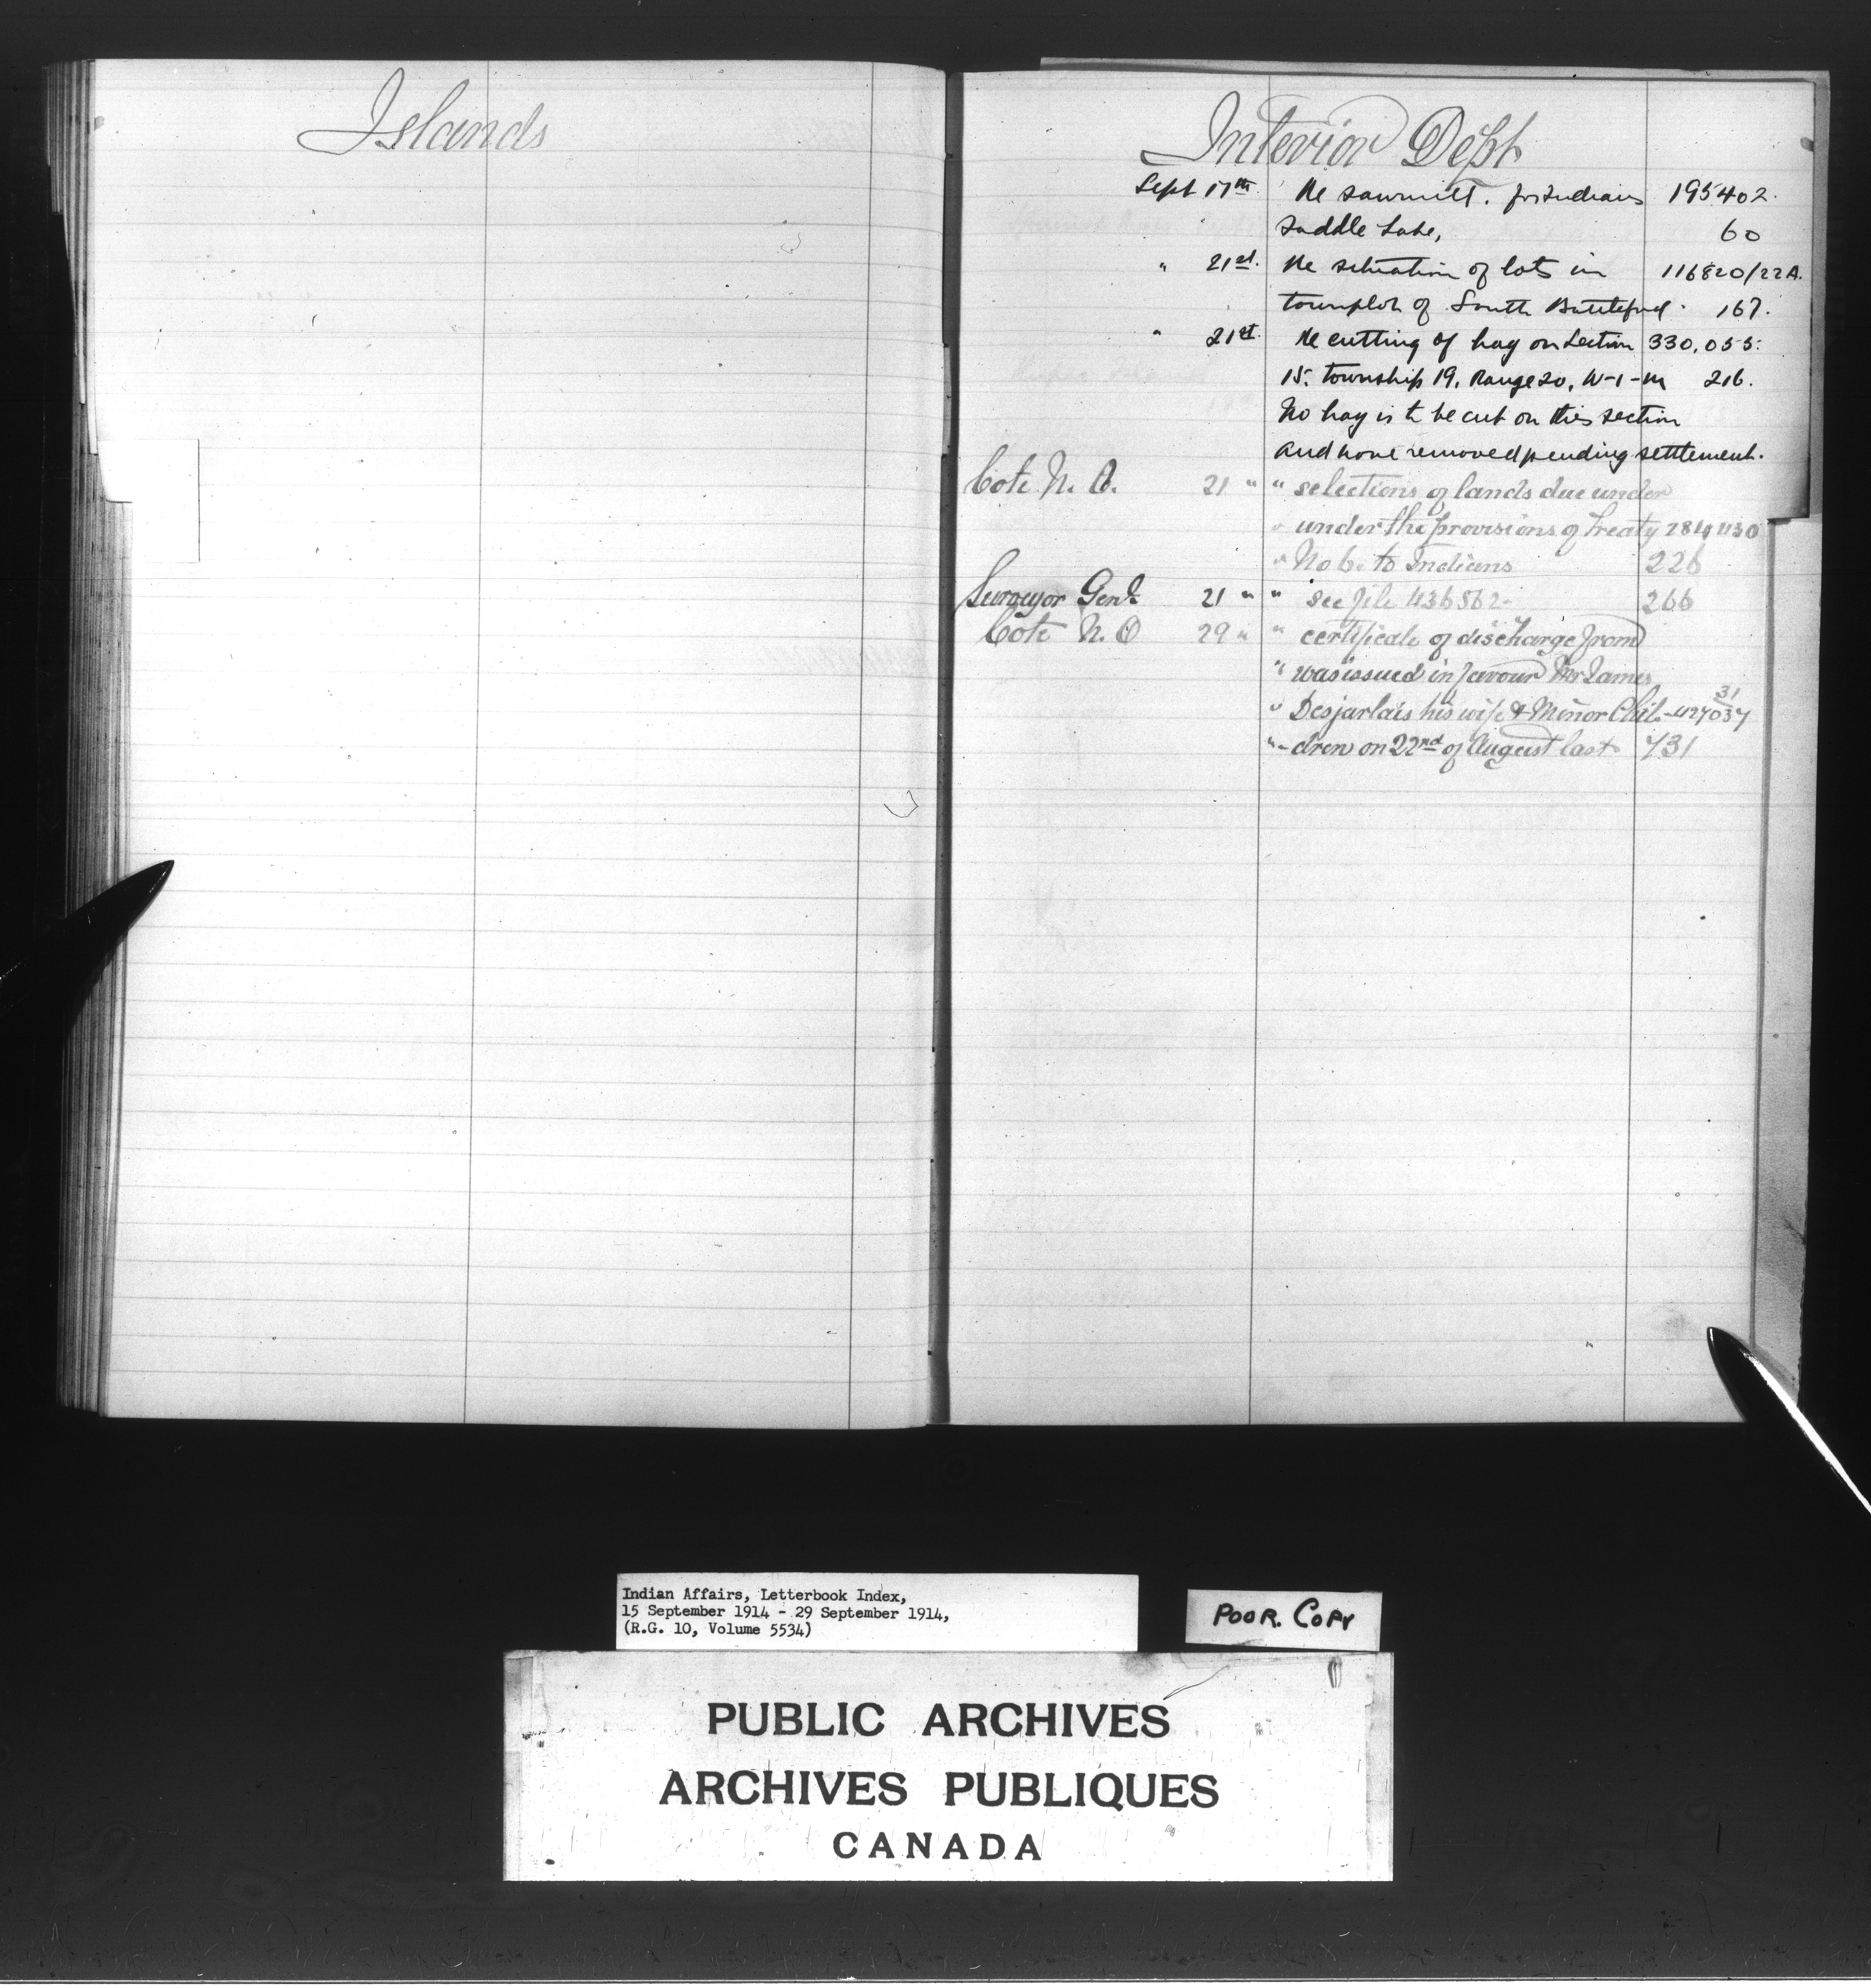 Islands
Interior Dept
Sept 17th Re sawmill. for Indians 195402.
Saddle Lake, 60
" 21st. Re situation of lots in 116820/22A.
townplot of South Battleford. 167.
" 21st. Re cutting of hay on Section 330,055.
15. township 19, Range 20, W-1-M 216.
No hay is to be cut on this section
and none removed pending settlement.
Cote N. O. 21 " " selections of lands due under
" under the provisions of Treaty
" No 6. to Indians 226
Surveyor Genl. 21 " " see file 436562- 266
Cote N. O 29 " " certificate of discharge from
" was issued in favour Mr James
" Desjarlais his wife & Minor Chil-
"-dren on 22nd of August last 731
Indian Affairs, Letterbook Index,
15 September 1914 - 29 September 1914,
(R.G. 10, Volume 5534)
POOR. COPY
PUBLIC ARCHIVES
ARCHIVES PUBLIQUES
CANADA